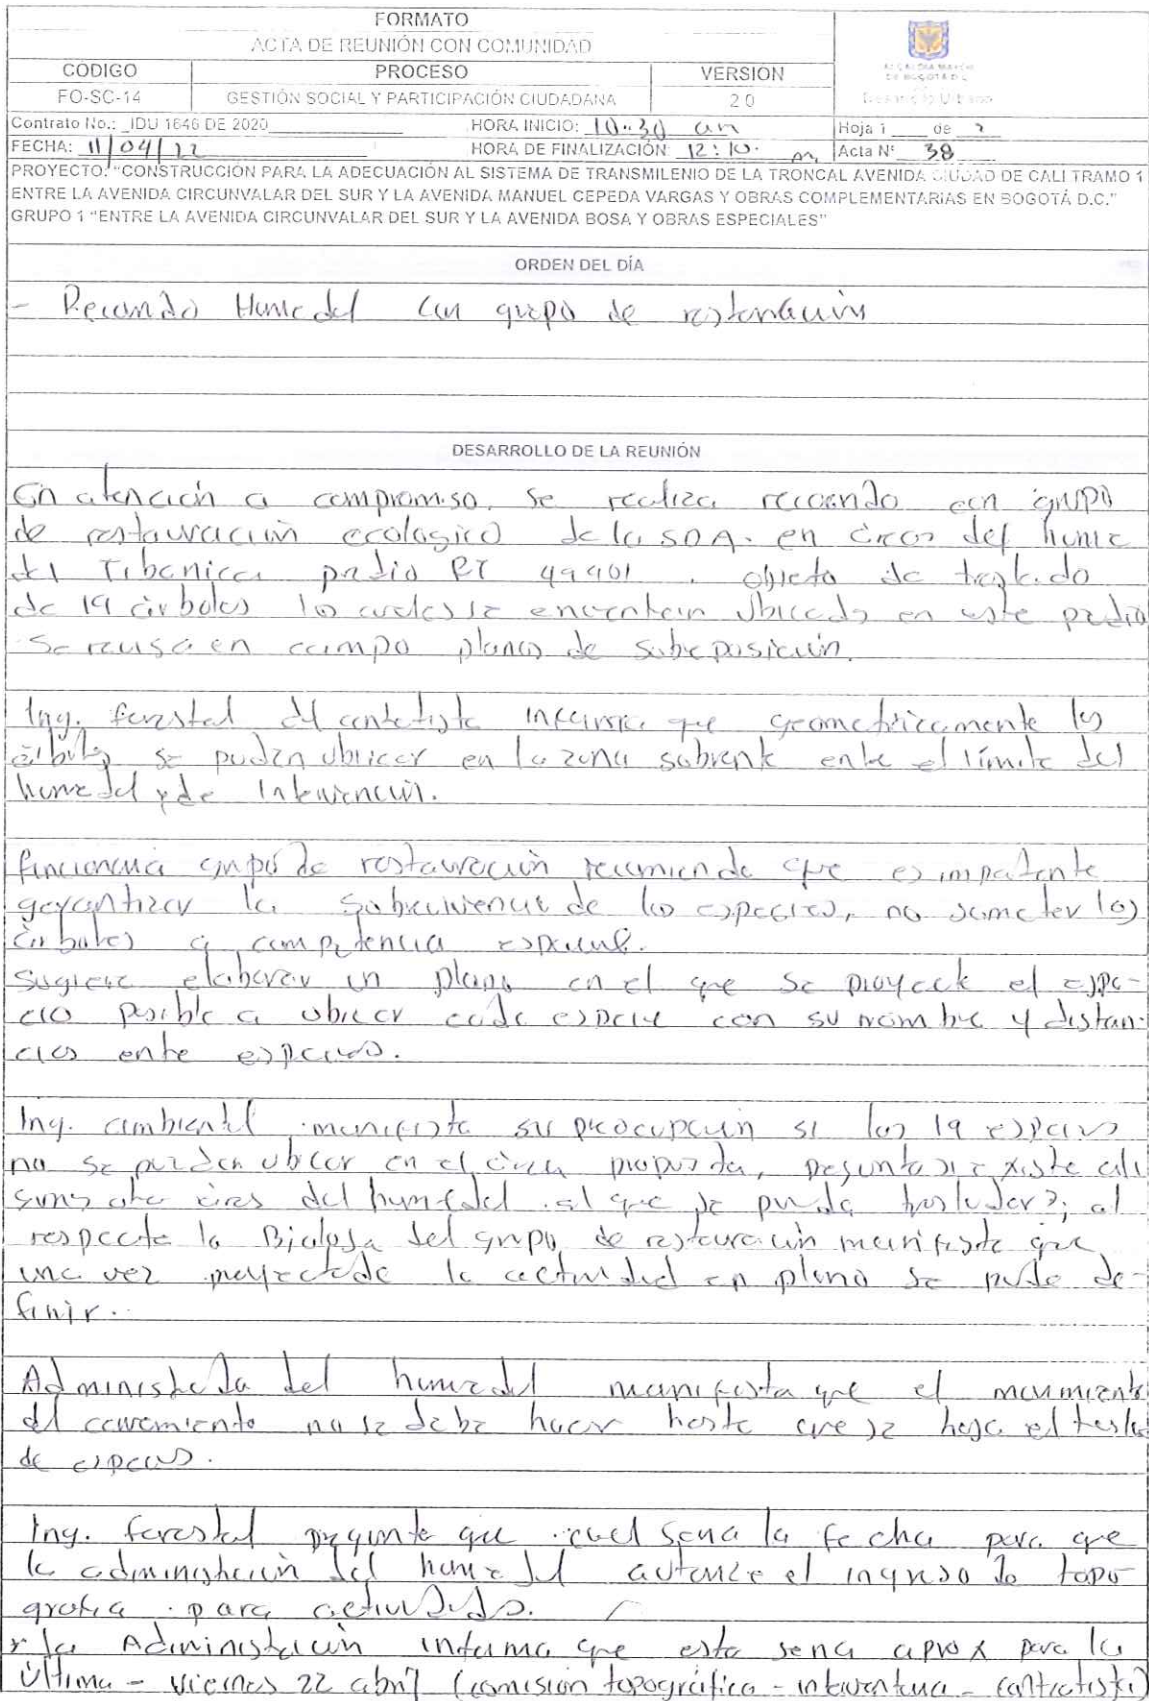 FORMATO
ACTA DE REUNIÓN CON COMUNIDAD
CÓDIGO PROCESO VERSIÓN
FO-SC-14 GESTIÓN SOCIAL Y PARTICIPACIÓN CIUDADANA 2.0
ALCALDÍA MAYOR
DE BOGOTÁ D.C.
Desarrollo Urbano
Contrato No.: _IDU 1646 DE 2020 HORA INICIO: 10:30 am Hoja 1 de 2
FECHA: 11/04/22 HORA DE FINALIZACIÓN: 12:10. m Acta N° 38
PROYECTO: "CONSTRUCCIÓN PARA LA ADECUACIÓN AL SISTEMA DE TRANSMILENIO DE LA TRONCAL AVENIDA CIUDAD DE CALI TRAMO 1
ENTRE LA AVENIDA CIRCUNVALAR DEL SUR Y LA AVENIDA MANUEL CEPEDA VARGAS Y OBRAS COMPLEMENTARIAS EN BOGOTÁ D.C."
GRUPO 1 "ENTRE LA AVENIDA CIRCUNVALAR DEL SUR Y LA AVENIDA BOSA Y OBRAS ESPECIALES"
ORDEN DEL DÍA
- Recorrido Humedal con grupo de restauración
DESARROLLO DE LA REUNIÓN
En atención a compromiso, se realiza recorrido con grupo
de restauración ecologico de la SDA. en áreas del hume
dal Tibanica predio RT 49401. objeto de traslado
de 19 árboles los cuales se encuentran ubicados en este predio
Se revisa en campo planos de sobreposición.
Ing. forestal del contratista informa que geometricamente los
árboles se pueden ubicar en la zona sobrante entre el límite del
humedal y de Intervención.
funcionaria grupo de restauración recomienda que es importante
garantizar la sobrevivencia de las especies, no someter los
árboles a competencia espacial.
Sugiere elaborar un plano en el que se proyecte el espa-
cio posible a ubicar cada especie con su nombre y distan-
cias entre especies.
Ing. ambiental manifiesta su preocupación si las 19 especies
no se pueden ubicar en el área propuesta, pregunta si existe al
guna otra área del humedal al que se pueda trasladar?; al
respecto la Bióloga del grupo de restauración manifiesta que
una vez proyectada la actividad en plano se puede de-
finir.
Administradora del humedal manifiesta que el movimiento
del cerramiento no se debe hacer hasta que se haga el traslado
de especies.
Ing. forestal pregunta que cual seria la fecha para que
la administración del humedal autorice el ingreso de topo
grafia para actividades.
* la Administración informa que esta seria aprox para la
última - viernes 22 abril (comisión topográfica - interventoria - contratista)